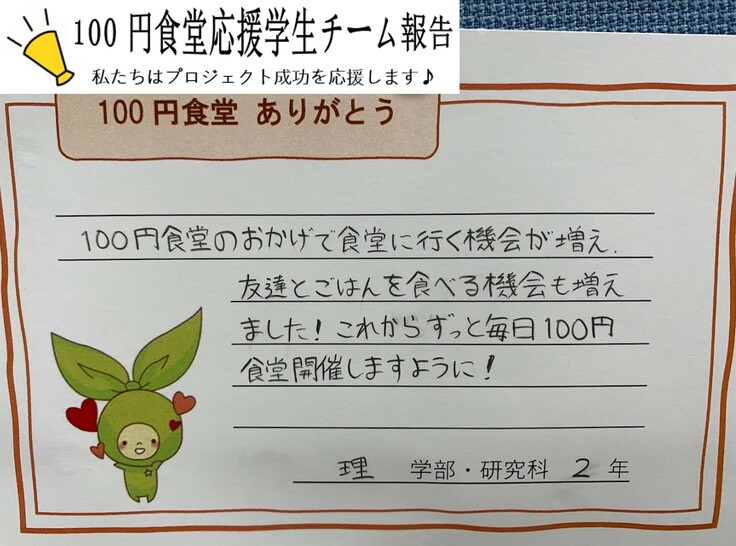 100円食堂応援学生チーム報告
私たちはプロジェクト成功を応援します♪
100円食堂 ありがとう
100円食堂のおかげで食堂に行く機会が増え、
友達とごはんを食べる機会も増え
ました！これからずっと毎日100円
食堂開催しますように！
理 学部・研究科 2 年